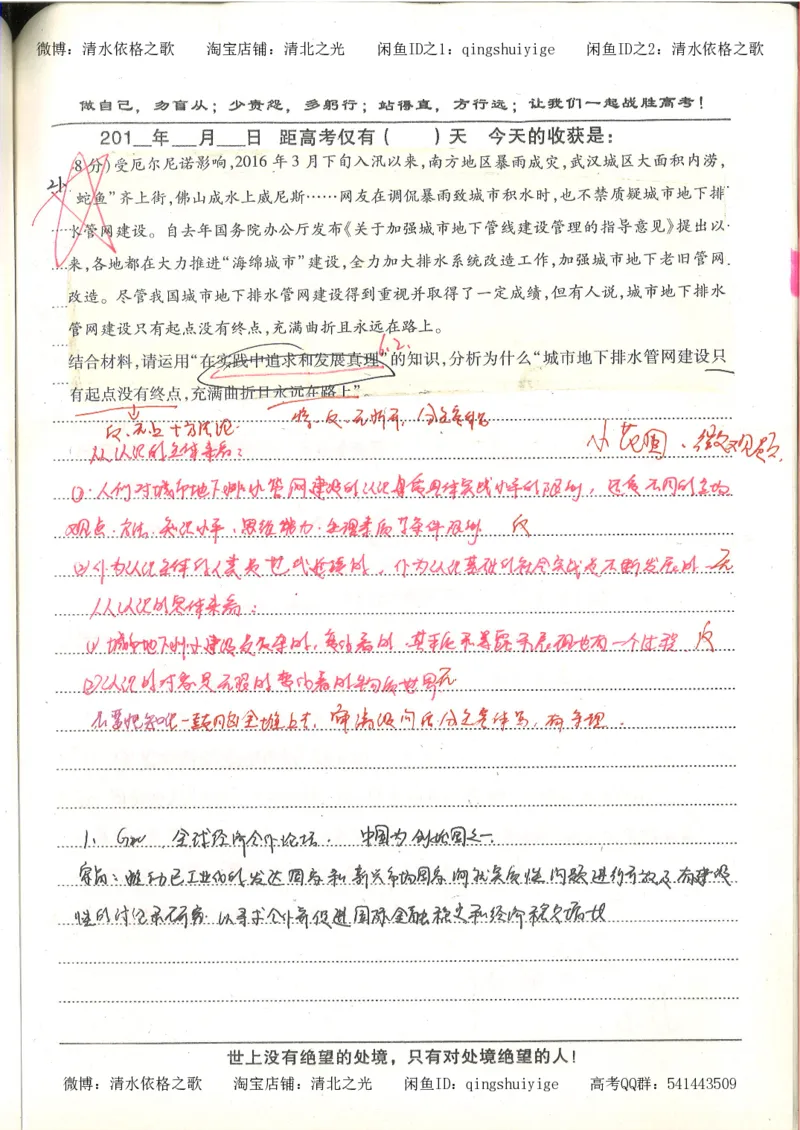 微博：清水依格之歌 淘宝店铺：清北之光 闲鱼ID之1：qingshuiyige 闲鱼ID之2：清水依格之歌
做自己，勿盲从；少责怨，多躬行；站得直，方行远；让我们一起战胜高考！
201__年___月___日 距高考仅有（ ）天 今天的收获是：
21. 8分）受厄尔尼诺影响，2016年3月下旬入汛以来，南方地区暴雨成灾，武汉城区大面积内涝，
蛇鱼”齐上街，佛山成水上威尼斯……网友在调侃暴雨致城市积水时，也不禁质疑城市地下排
水管网建设。自去年国务院办公厅发布《关于加强城市地下管线建设管理的指导意见》提出以
来，各地都在大力推进“海绵城市”建设，全力加大排水系统改造工作，加强城市地下老旧管网
改造。尽管我国城市地下排水管网建设得到重视并取得了一定成绩，但有人说，城市地下排水
管网建设只有起点没有终点，充满曲折且永远在路上。
6.2.
结合材料，请运用“在实践中追求和发展真理”的知识，分析为什么“城市地下排水管网建设只
有起点没有终点，充满曲折且永远在路上”
反、无上十方法论
小花园、微观题
从认识的主体来看：
①人们对城市地下排水管网建设的认识具有具体实践水平的限制，还有不同的立场
观点、方法、知识水平、思维能力、生理素质等条件限制 反
②作为认识主体的人类是世代延续的，作为认识基础的社会实践是不断发展的 无
从认识的客体来看：
①城市地下排水建设是复杂的，变动着的，其本质暴露 有一个过程 反
②认识的对象是无限的变动着的物质世界 无
不要把知识一股脑的全堆上去，审清设问
1、G20 全球经济合作论坛. 中国为创始国之一.
宗旨：推动已工业化的发达国家和新兴市场国家间就实质性问题进行开放及有建设
性的讨论和研究 以寻求合作并促进国际金融稳定和经济
世上没有绝望的处境，只有对处境绝望的人！
微博：清水依格之歌 淘宝店铺：清北之光 闲鱼ID：qingshuiyige 高考QQ群：541443509